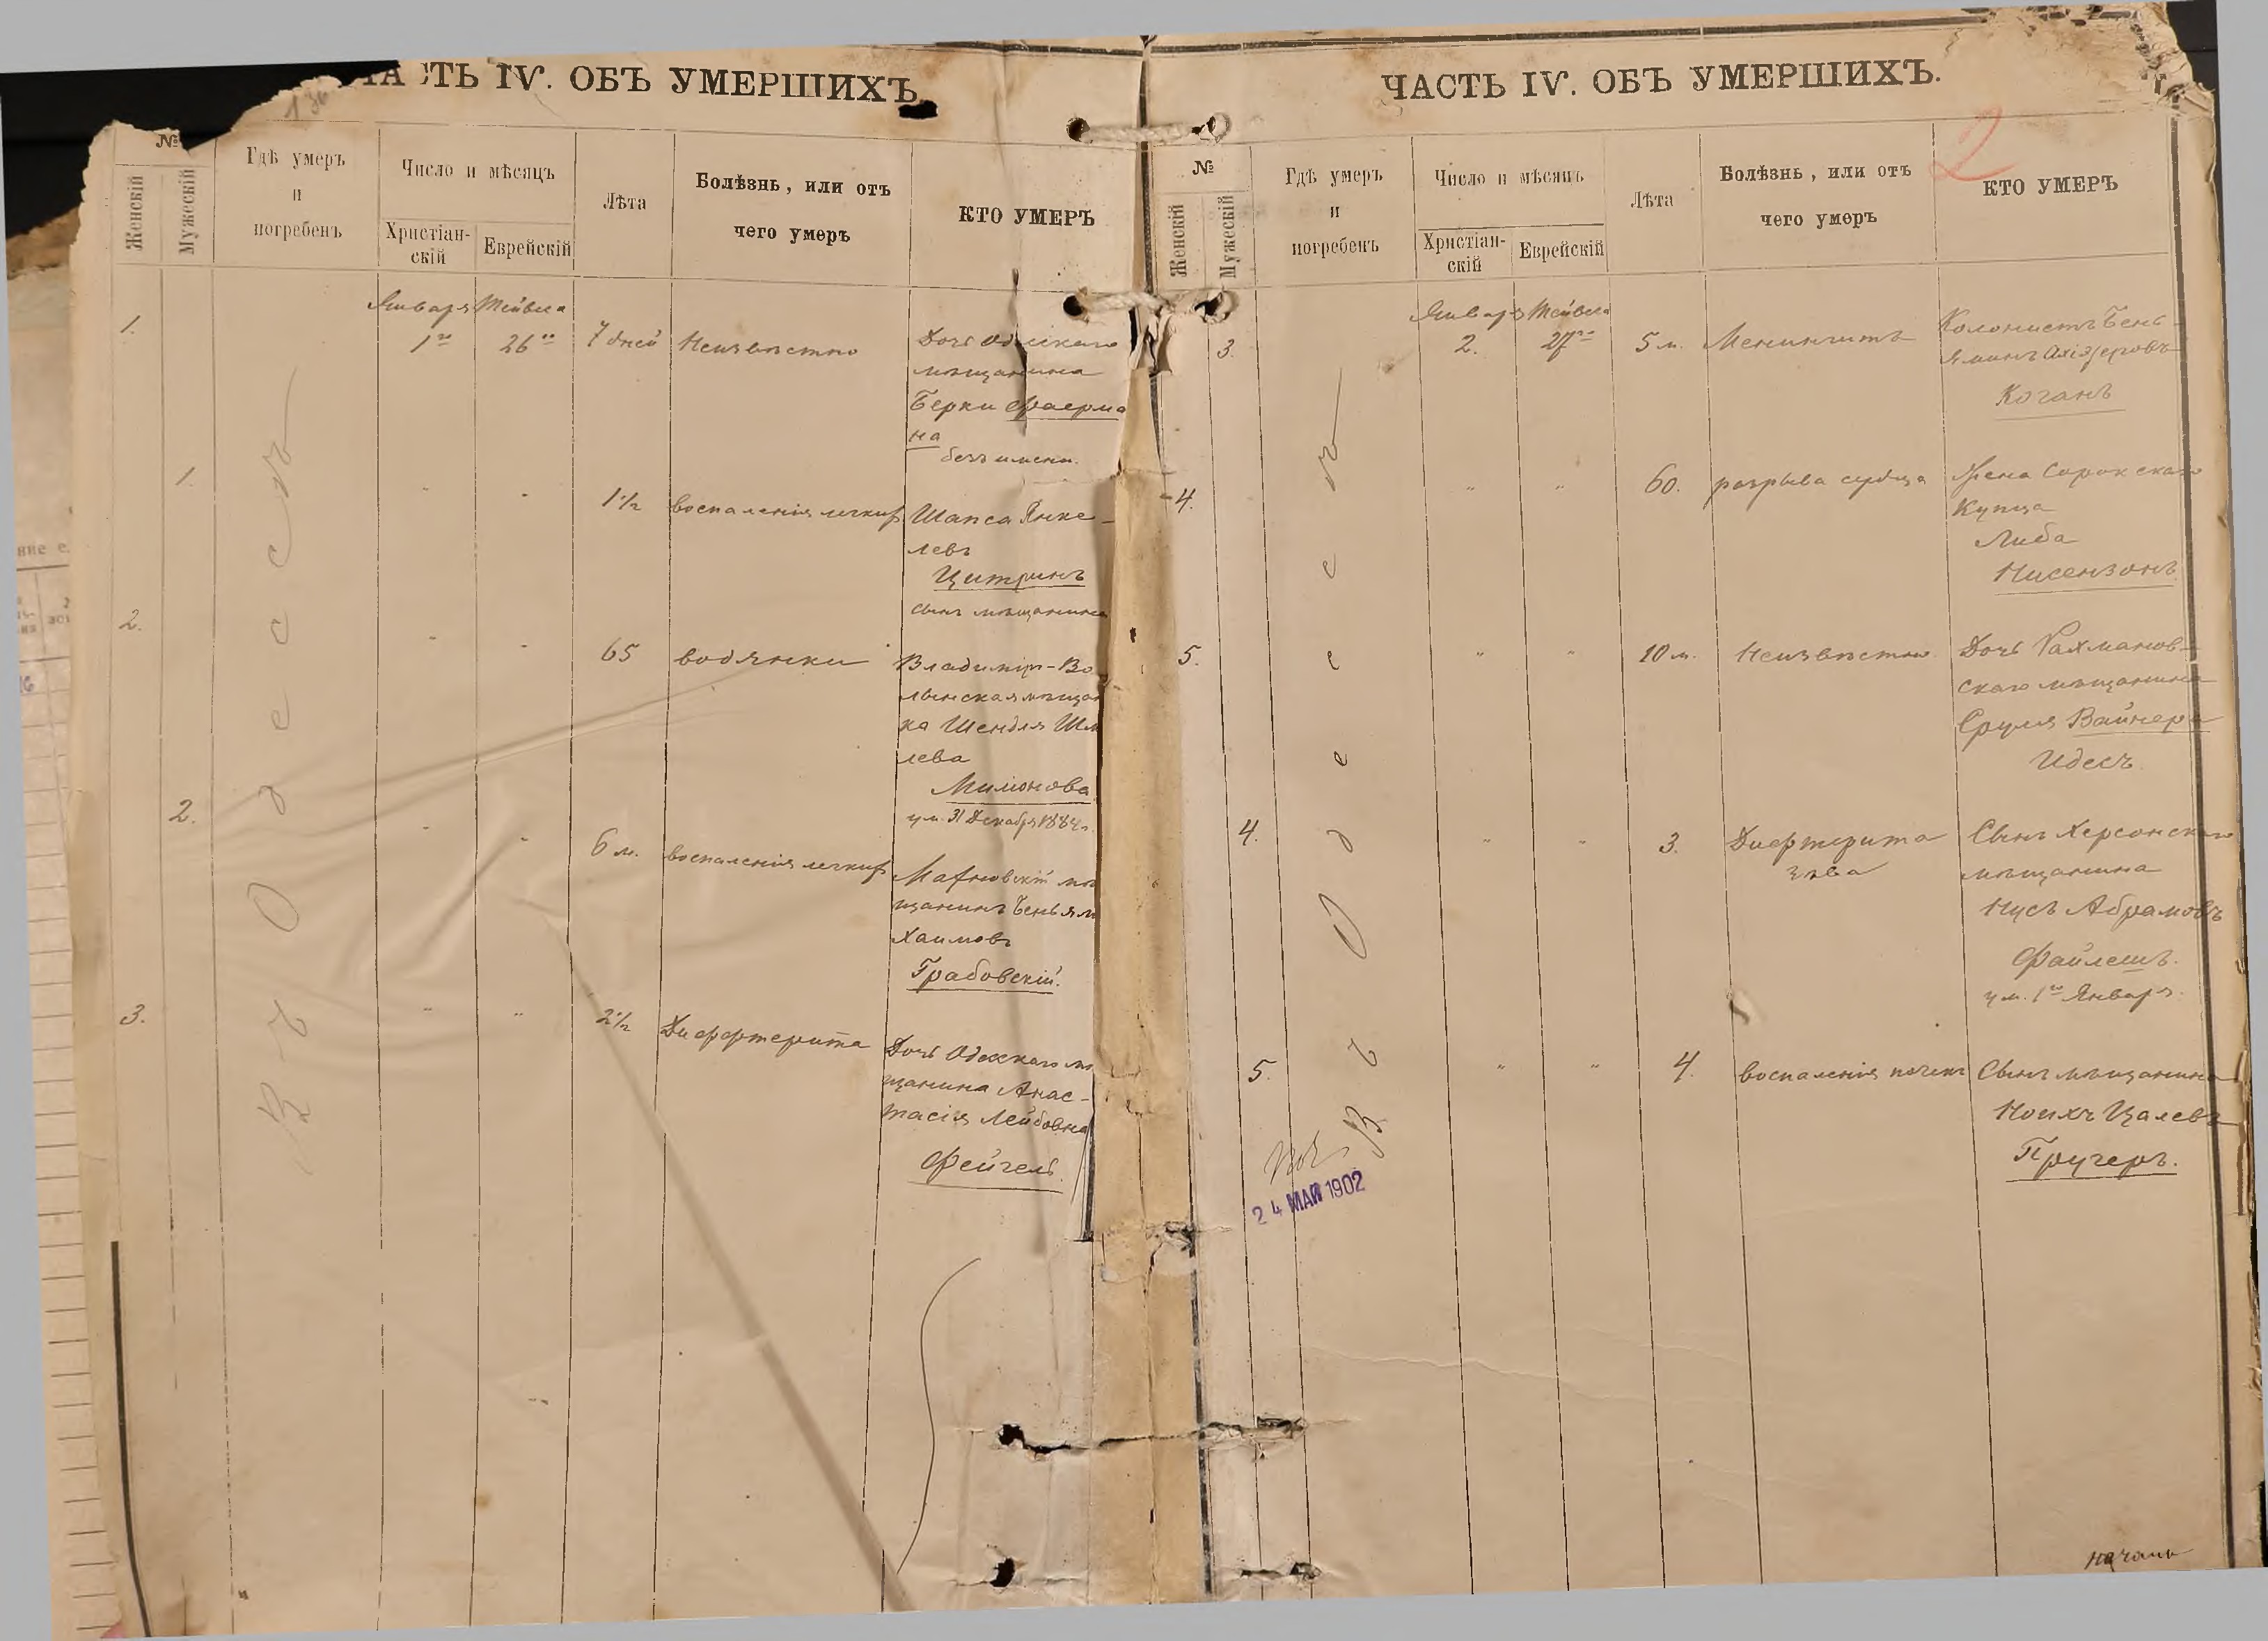 ЧАСТЬ IV. ОБЪ УМЕРШИХЪ.
№
Женскій
Мужескій
Гдѣ умеръ
и
погребенъ
Число и мѣсяцъ
Христіан-
скій
Еврейскій
Лѣта
Болѣзнь, или отъ
чего умеръ
КТО УМЕРЪ
Въ Одессѣ
1.
Января
1го
Тейвеса
26го
7 дней
Неизвѣстно
Дочь Одесскаго
мѣщанина
Берки Фаерма
на
безъ имени.
1.
"
"
1½
воспаленія легкихъ
Шапса Янке-
левъ
Цитринъ
сынъ мѣщанина
2.
"
"
65
водянки
Владимір-Во
лынская мѣщан
ка Шендля Шм
лева
Милюнова
ум. 31 Декабря 1884 г.
2.
"
"
6 м.
воспаленія легкихъ
мѣ
щанинъ Беньям
Хаимовъ
Грабовскій.
3.
"
"
2½
Дифтерита
Дочь Одесскаго мѣ
щанина Анас-
тасія Лейбовна
Фейгель.
ЧАСТЬ IV. ОБЪ УМЕРШИХЪ.
2
№
Женскій
Мужескій
Гдѣ умеръ
и
погребенъ
Число и мѣсяцъ
Христіан-
скій
Еврейскій
Лѣта
Болѣзнь, или отъ
чего умеръ
КТО УМЕРЪ
Въ Одессѣ
3.
Января
2.
Тейвеса
27го
5 м.
Менингитъ
Колонистъ Бень-
яминъ Ахіезеровъ
Коганъ
4.
"
"
60.
разрыва сердца
Жена Сорокскаго
Купца
Либа
Нисензонъ
5.
"
"
10 м.
Неизвѣстно
Дочь Рахманов-
скаго мѣщанина
Сруля Вайнера
Идесъ
4.
"
"
3.
Дифтерита
зѣва
Сынъ Херсонскаго
мѣщанина
Нусъ Абрамовъ
Файлешъ.
ум. 1го Января.
5.
"
"
4.
воспаленія почекъ
Сынъ мѣщанина
Ноихъ Цалевъ
Пругеръ.
24 МАЯ 1902